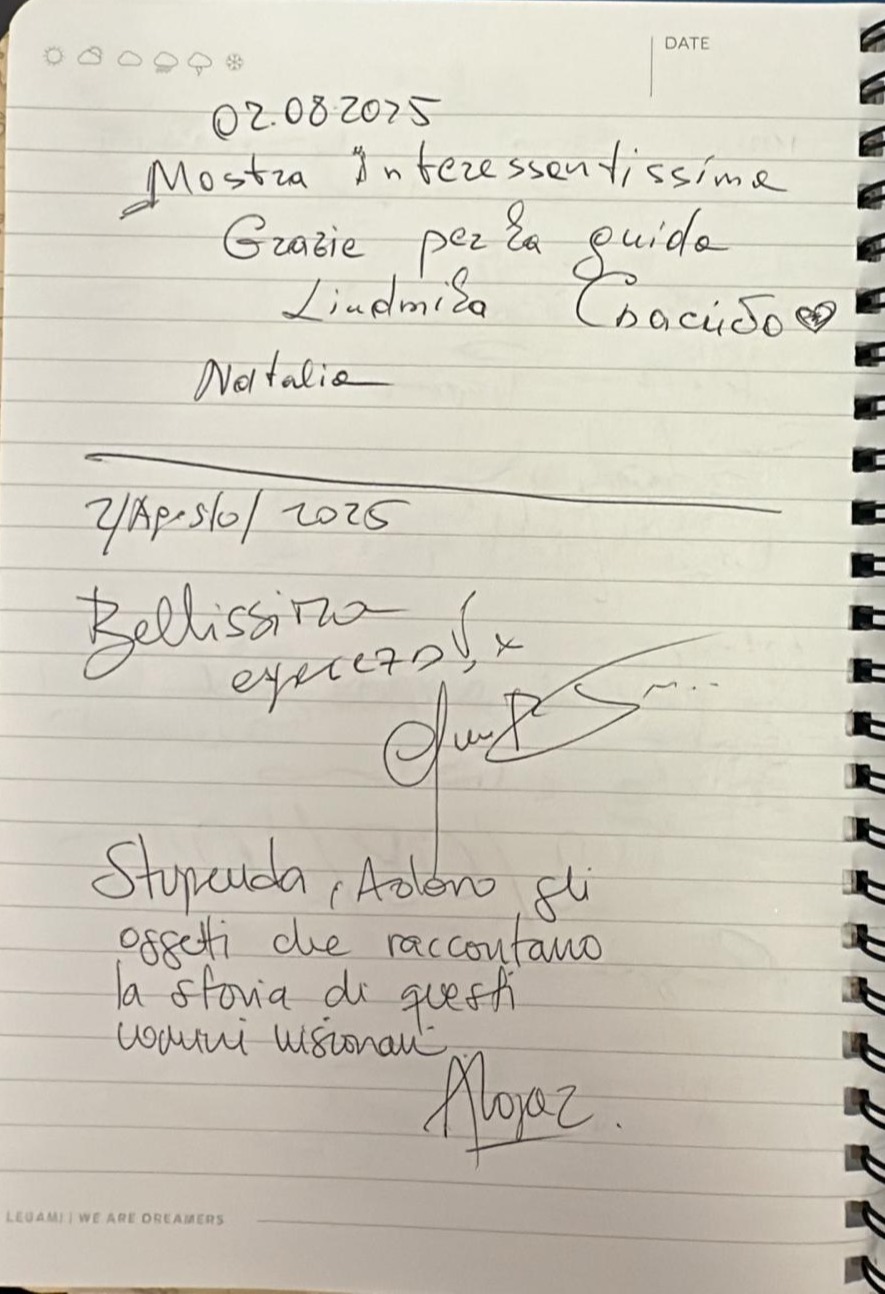 DATE
02.08.2025
Mostra Interessentissima
Grazie per la guida
Liudmila Спасибо
Natalia
2/Agosto/2025
Bellissima
esperienza!
Stupenda, Adoro gli
oggetti che raccontano
la storia di questi
uomini visionari.
LEGAMI | WE ARE DREAMERS